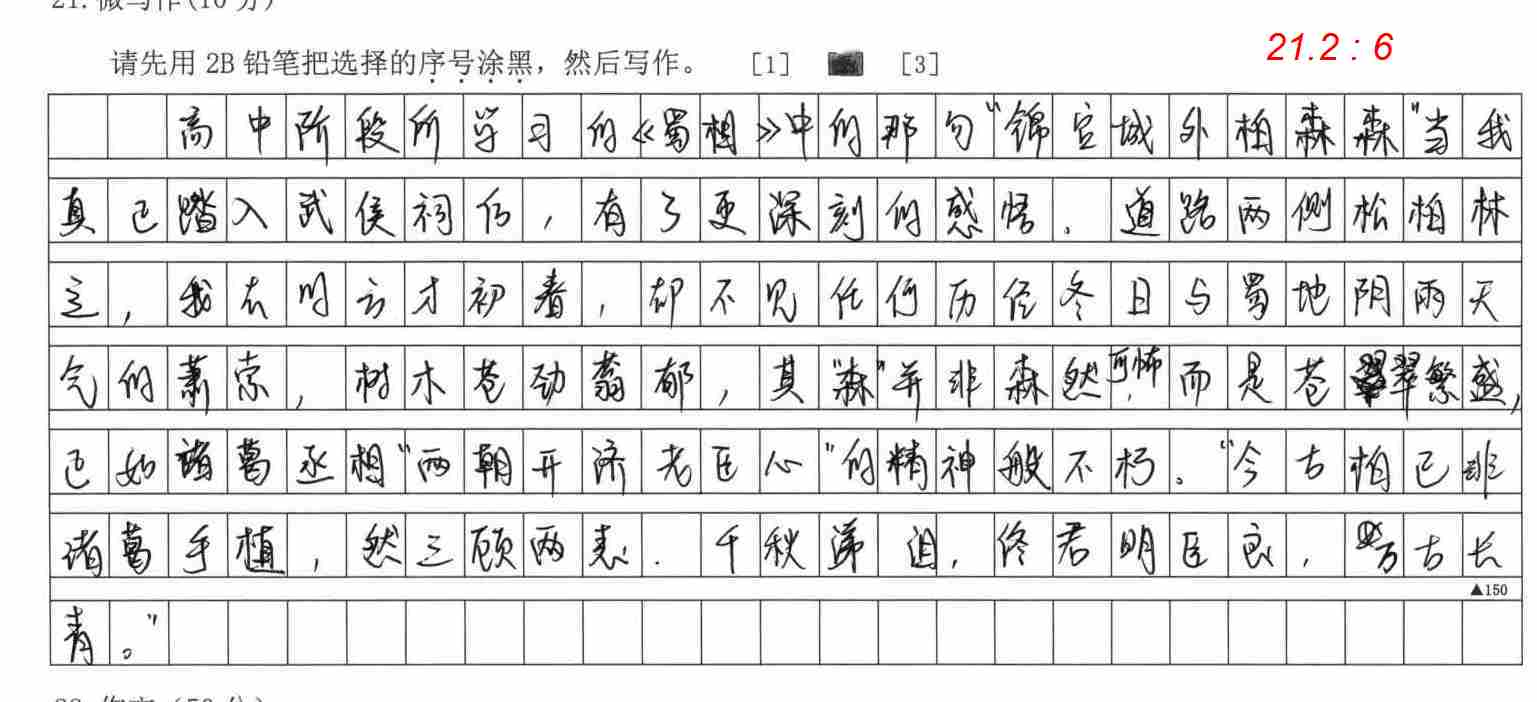 21. 微写作(10 分)
请先用 2B 铅笔把选择的序号涂黑，然后写作。 [1] [3]
21.2 : 6
高中阶段所学习的《蜀相》中的那句“锦官城外柏森森”当我
真已踏入武侯祠后，有了更深刻的感悟。道路两侧松柏林
立，我去时方才初春，却不见任何历经冬日与蜀地阴雨天
气的萧索，树木苍劲蓊郁，其“森”并非森然可怖，而是苍翠繁盛，
正如诸葛丞相“两朝开济老臣心”的精神般不朽。“今古柏已非
诸葛手植，然三顾两表．千秋涕泪，佟君明臣良，万古长
▲150
青。”